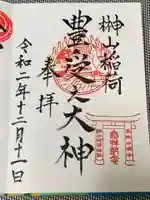 榊山稲荷
豊受之大神
奉拝
令和二年十二月十一日